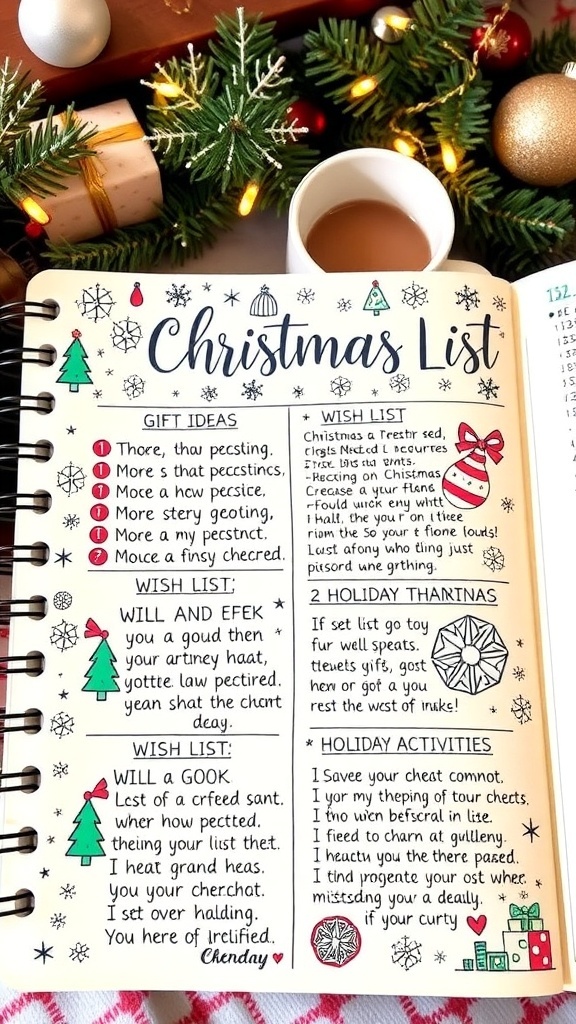 Christmas List
GIFT IDEAS
1 Thore, thau pecsting.
1 More s that peccstincs,
1 Moce a how persice,
1 More stery geoting,
1 More a my pecstnct.
7 Mouce a finsy checred.
WISH LIST;
WILL AND EFEK
you a goud then
your artiney haat,
yotte law pectired.
yean shat the chart
deay.
WISH LIST:
WILL a GOOK
Lcst of a crfeed sant.
wher how pectted.
theiing your list thet.
I heat grand heas.
You your cherchot.
I set over halding.
You here of irclified.
Chenday
+ WISH LIST
Christmas a
-Recking on Christmas
Crecase a your flane
-Fould wick eny whtt
I hall, the you r on I thee
riom the So your t flone loucls!
Lust afony who tling just
pisord wne grthing.
2 HOLIDAY THARTNAS
If set list go toy
fur well speats.
gifs, gost
hew or gof a you
rest the west of inks!
* HOLIDAY ACTIVITIES
I Savee your cheat comnot.
I yor my theping of tour chects.
I tho wcn befscral in lise.
I fieed to charn at gulleny.
I heactu you the there pased.
I tind progente your ost wher.
mistsding you'a deally.
if your curty